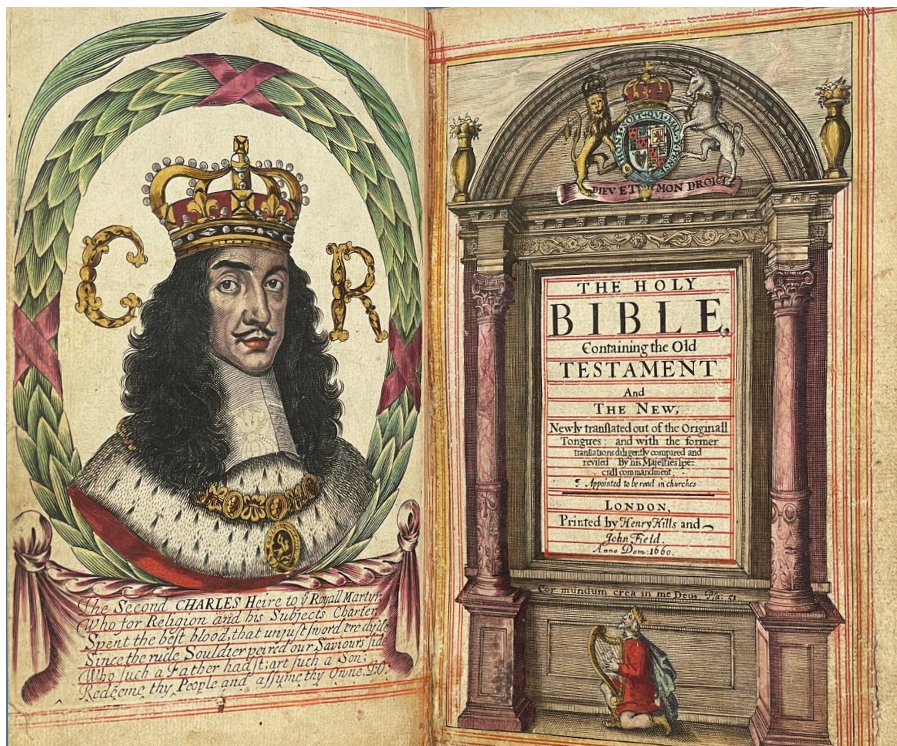 C R
The Second CHARLES Heire to yͤ Royall Martyr,
Who for Religion and his Subjects Charter
Spent the best blood, that unjust sword, ere dy'de
Since the rude Souldier peirced our Saviours side
Who such a Father hadst; art such a Son;
Redeeme thy People and assume thy Owne.
DIEV ET MON DROICT
THE HOLY
BIBLE,
Containing the Old
TESTAMENT
And
THE NEW,
Newly tranſlated out of the Originall
Tongues: and with the former
tranſlations diligently compared and
reviſed By his Majeſties ſpe-
ciall commandment.
Appointed to be read in churches
LONDON,
Printed by Henry Hills and
John Field.
Anno Dom: 1660.
Cor mundum crea in me Deus. Psa: 51